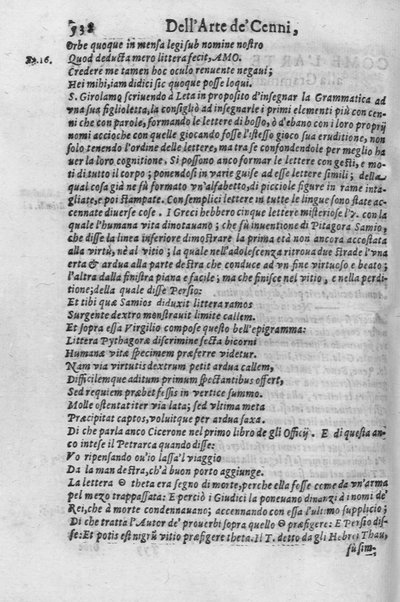 538 Dell'Arte de' Cenni,
Orbe quoque in mensa legi sub nomine nostro
Ep. 16. Quod deducta mero littera fecit, AMO.
Credere me tamen hoc oculo renuente negaui;
Hei mihi, iam didici sic quoque posse loqui.
S. Girolamo scriuendo à Leta in proposito d'insegnar la Grammatica ad
vna sua figlioletta, la consigliò ad insegnarle i primi elementi più con cen-
ni che con parole, formando le lettere di bosso, ò d'ebano con i loro proprij
nomi accioche con quelle giocando fosse l'istesso gioco sua eruditione, non
solo tenendo l'ordine delle lettere, ma tra se confondendole per meglio ha
uer la loro cognitione. Si possono anco formar le lettere con gesti, e mo-
ti di tutto il corpo; ponendosi in varie guise ad esse lettere simili; della
qual cosa già ne fù formato vn'alfabetto, di picciole figure in rame inta-
gliate, e poi stampate. Con semplici lettere in tutte le lingue sono state ac-
cennate diuerse cose. I Greci hebbero cinque lettere misteriose l'y. con la
quale l'humana vita dinotauano; che fù inuentione di Pitagora Samio,
che disse la linea inferiore dimostrare la prima età non ancora accostata
alla virtù, nè al vitio; la quale nell'adolescenza ritroua due strade l'vna
erta & ardua alla parte destra che conduce ad vn fine virtuoso e beato;
l'altra dalla sinistra piana e facile; ma che finisce nel vitio, e nella perdi-
tione; della quale disse Persio:
Et tibi quæ Samios diduxit littera ramos
Surgente dextro monstrauit limite callem.
Et sopra essa Virgilio compose questo bell'epigramma:
Littera Pythagoræ discrimine secta bicorni
Humanæ vitæ specimem præferre videtur.
Nam via virtutis dextrum petit ardua callem,
Difficilemque aditum primum spectantibus offert,
Sed requiem præbet fessis in vertice summo.
Molle ostentat iter via lata; sed vltima meta
Præcipitat captos, voluitque per ardua saxa.
Di che parla anco Cicerone nel primo libro de gli Officij. E di questa an-
co intese il Petrarca quando disse:
Vo ripensando ou'io lassa'l viaggio
Da la man destra, ch'à buon porto aggiunge.
La lettera Θ theta era segno di morte, perche ella fosse come da vn'arma
pel mezo trappassata: E perciò i Giudici la poneuano dinanzi à i nomi de'
Rei, che à morte condennauano; accennando con essa l'vltimo supplicio;
Di che tratta l'Autor de' prouerbi sopra quello Θ præfigere: E Persio dis-
se: Et potis est nigrũ vitio præfigere theta. Il T. detto da gli Hebrei Thau,
fù sim-